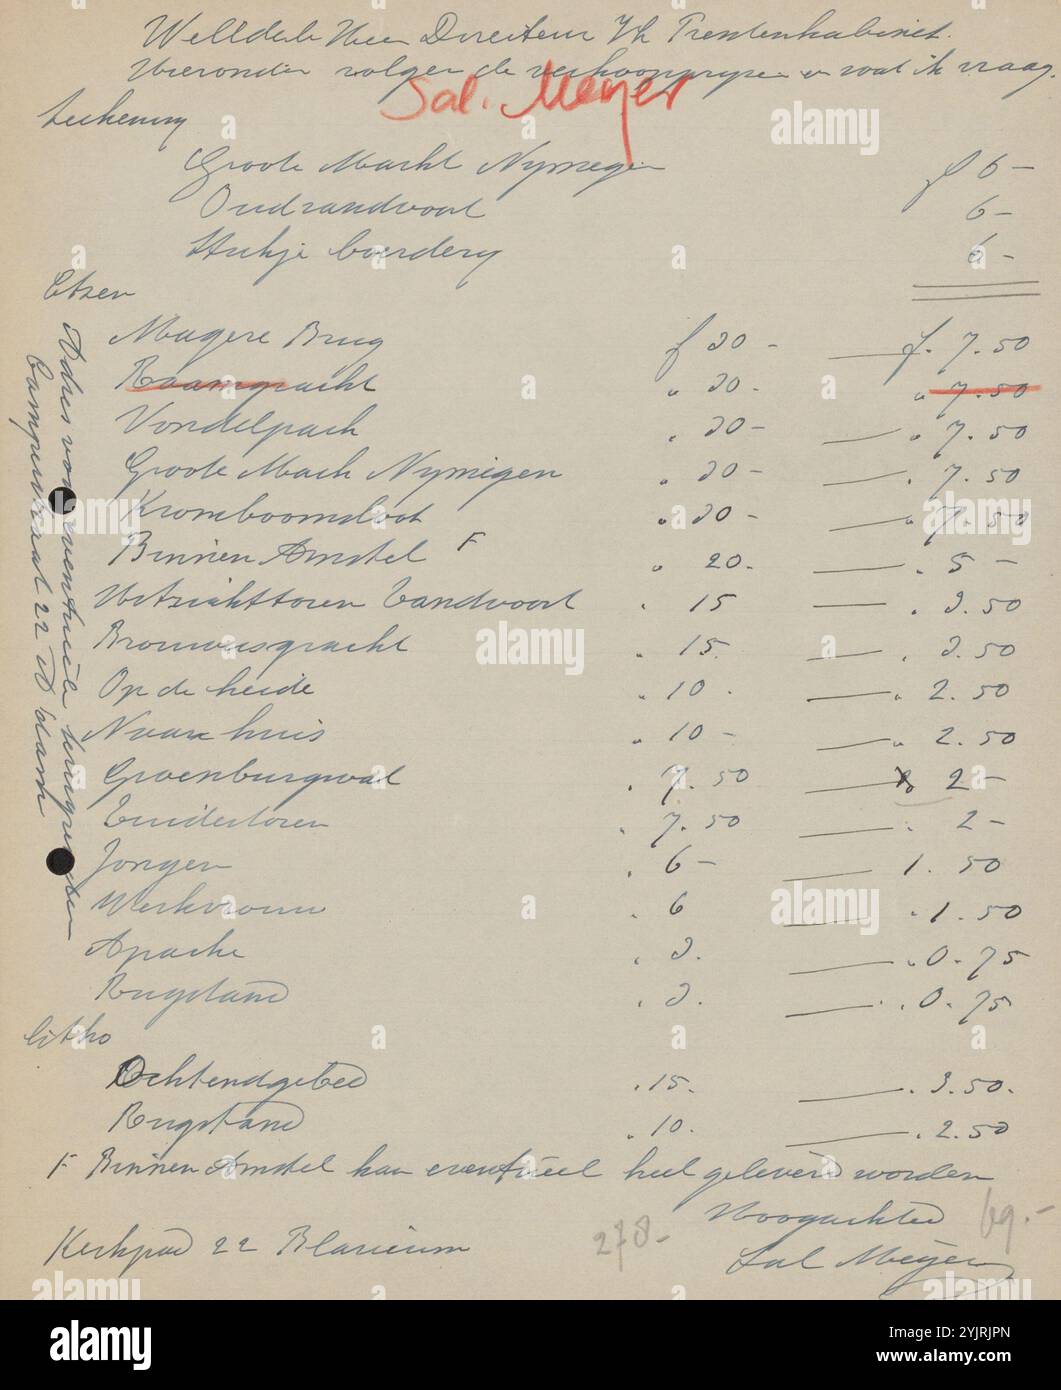 WelEdele Heer Directeur Rk Prentenkabinet.
Hieronder volgen de verkoopprijzen en wat ik vraag
Sal. Meyer
teekening
Groote Markt Nymegen f 6 –
Oudzandvoort 6 –
Stukje boerdery 6 –
Etsen
Magere Brug f 30 – — f. 7.50
Raamgracht " 30 - " 7.50
Vondelpark " 30 – — " 7.50
Groote Mark Nymigen " 30 – — " 7.50
Kromboomsloot " 30 – — " 7.50
Binnen Amstel F " 20. — " 5 –
Uitzichttoren Zandvoort " 15 — " 3.50
Brouwersgracht " 15. — " 3.50
Op de heide " 10. — " 2.50
Naar huis " 10 – — " 2.50
Groenburgwal " 7.50 — " 2 –
Zuidertoren " 7.50 — " 2 –
Jongen " 6 – — 1.50
Werkvrouw " 6 — " 1.50
Apache " 3. — " 0.75
Rustend " 3. — " 0.75
Litho
Ochtendgebed " 15. — " 3.50.
Rustend " 10. — " 2.50
F Binnen Amstel kan eventueel heel geleverd worden
Hoogachtend 69.–
Kerkpad 22 Blaricum 278.– Sal Meÿer
Adres voor eventuele terugzenden
Camperstraat 22 A'dam
alamy
Image ID: 2YJRJPN
www.alamy.com